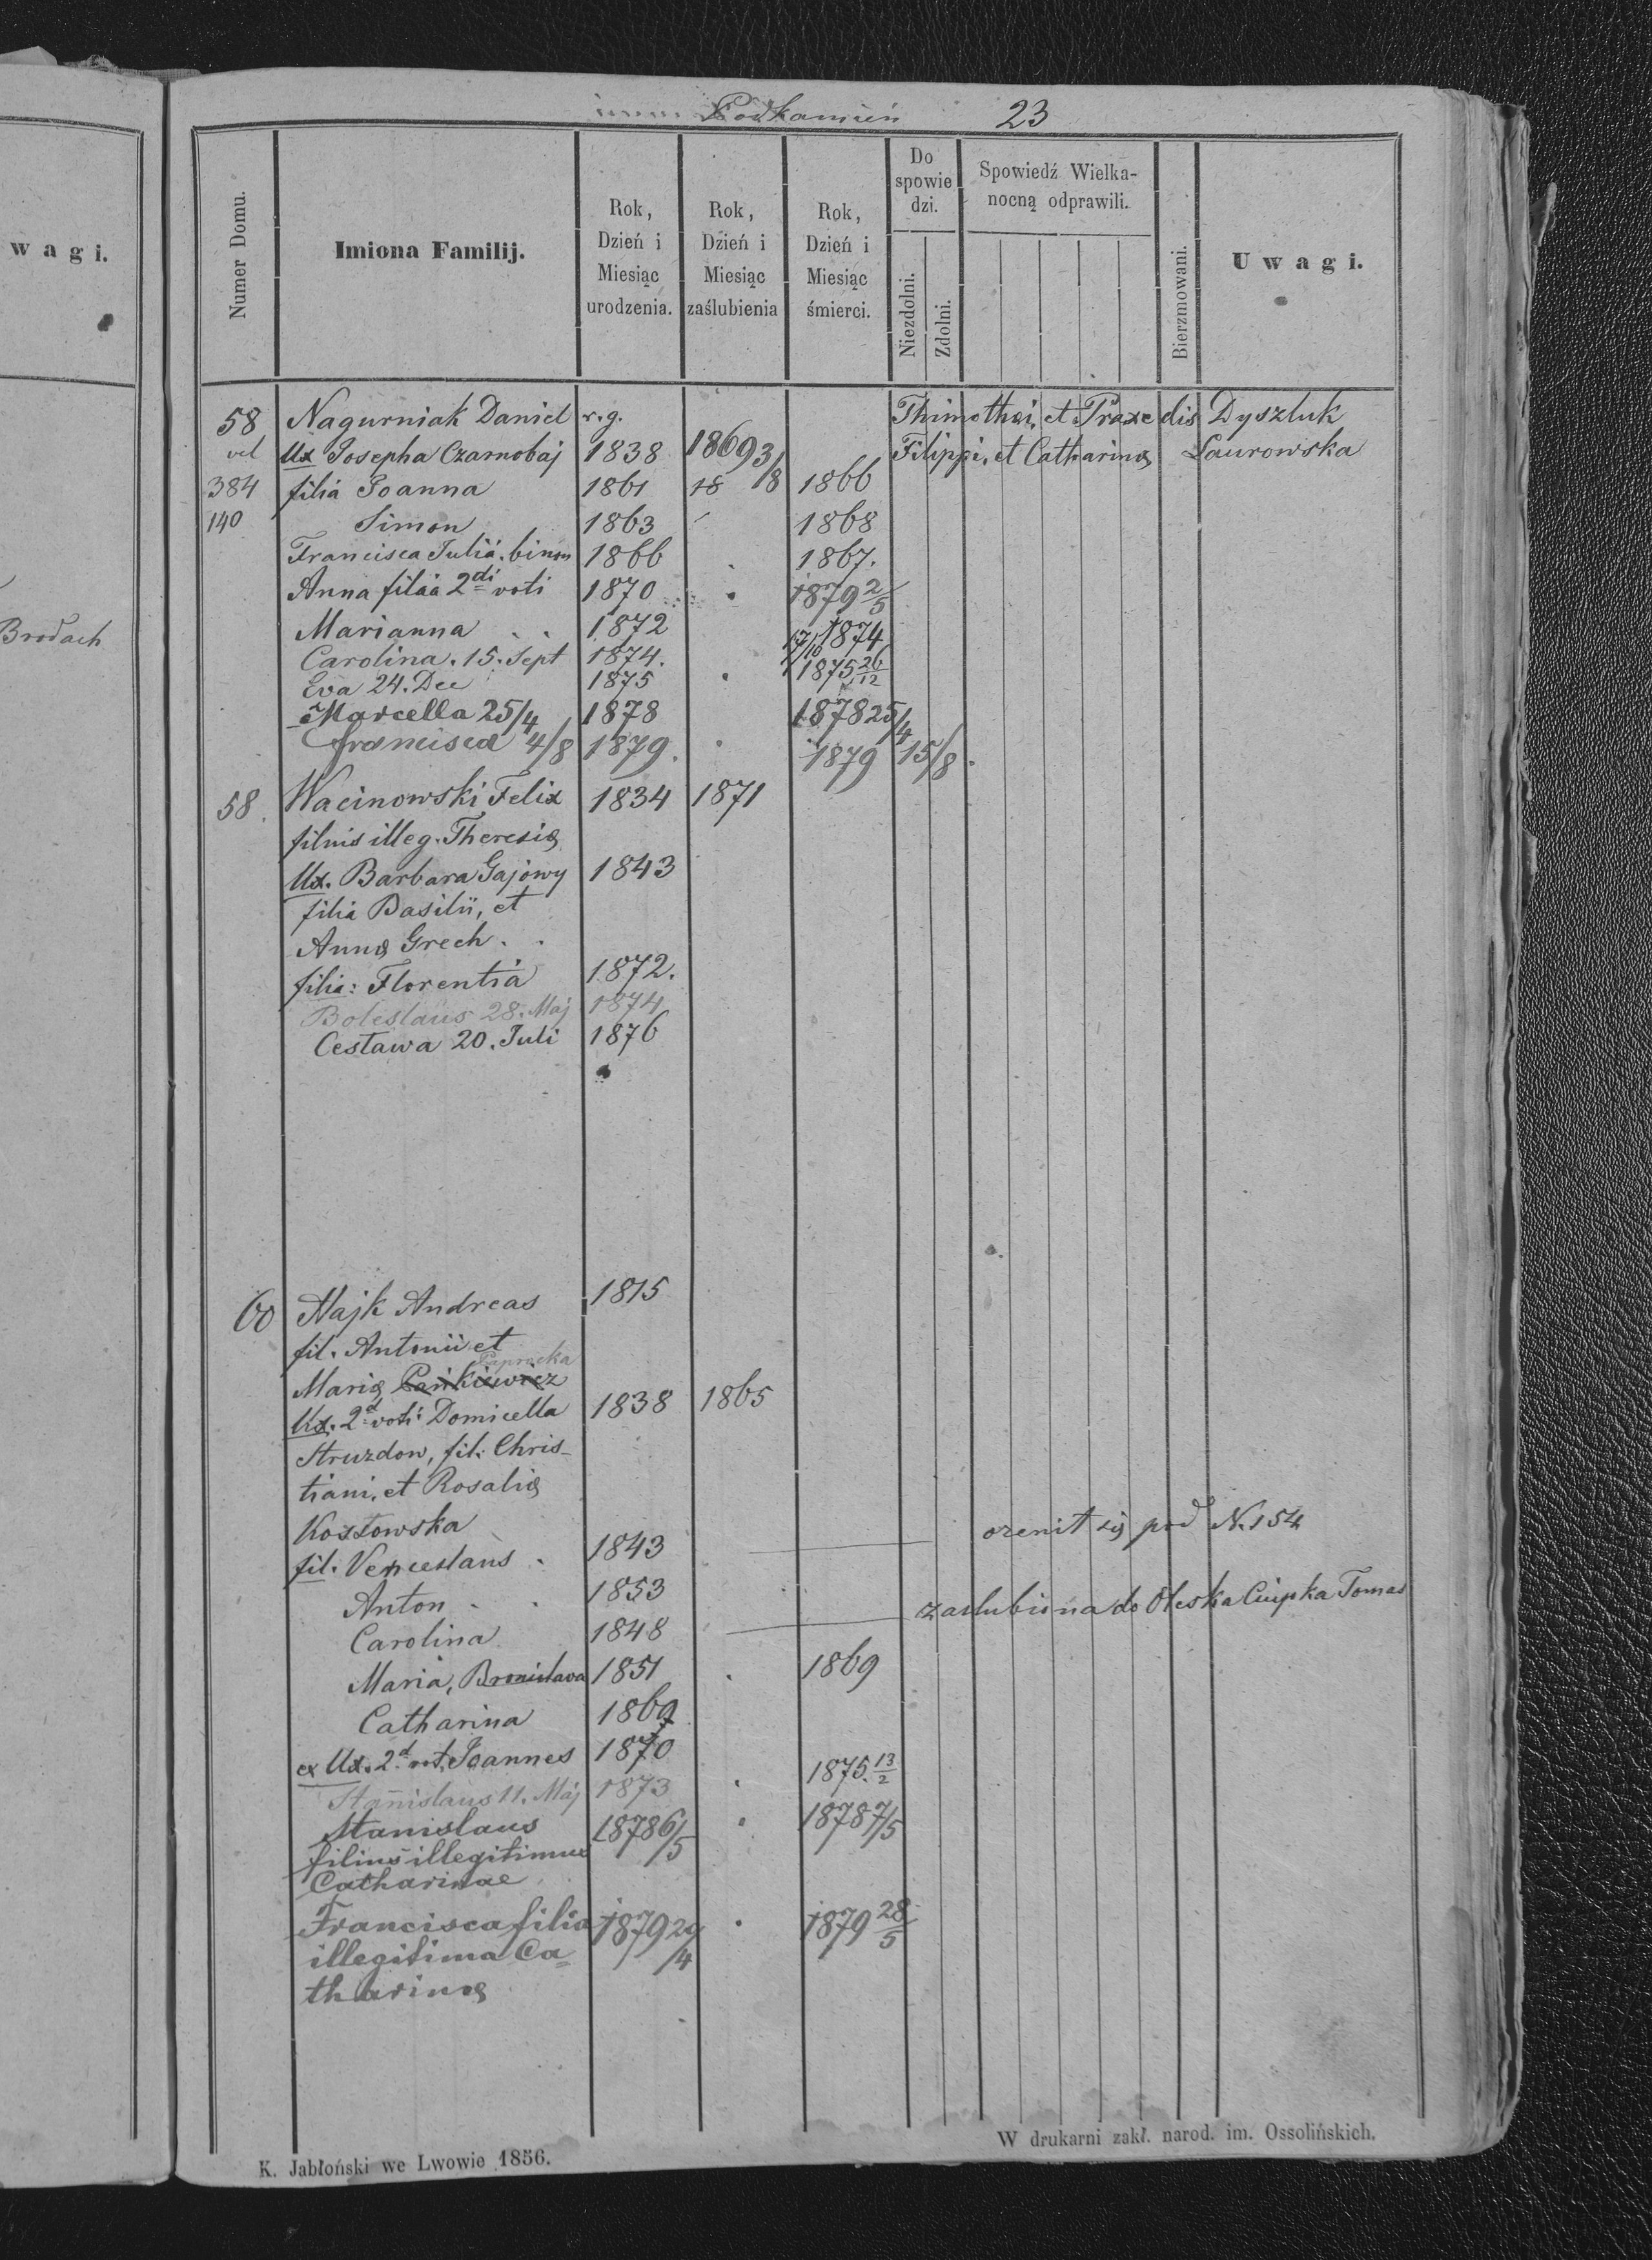 Podkamień 23
w a g i.
Brodach
Numer Domu.
Imiona Familij.
Rok, Dzień i Miesiąc urodzenia.
Rok, Dzień i Miesiąc zaślubienia
Rok, Dzień i Miesiąc śmierci.
Do spowie dzi.
Niezdolni.
Zdolni.
Spowiedź Wielka-
nocną odprawili.
Bierzmowani.
U w a g i.
58 Nagurniak Daniel r.g. Thimothei, et Praxedis Dyszluk
vel Ux Josepha Czarnobaj 1838 1869 3/8 Filippi, et Catharinæ Laurowska
384 filia Joanna 1861 18 1866
140 Simon 1863 1868
Francisca Julia binom 1866 1867.
Anna filia 2di voti 1870 1879 2/5
Marianna 1872 1874
Carolina. 15. Sept 1874. 17/10 1875 26/12
Eva 24. Dec 1875
Marcella 25/4 1878 1878 25/4
Francisca 4/8 1879. 1879 15/8.
58. Wacinowski Felix 1834 1871
filius illeg. Theresiæ
Ux. Barbara Gajowy 1843
filia Basilii, et
Annæ Grech.
filia: Florentia 1872.
Boleslaus 28. Maj 1874
Cesława 20. Juli 1876
60 Majk Andreas 1815
fil. Antonii et
Paprocka
Mariæ Pankiewicz
Ux. 2d voti Domicella 1838 1865
Struzdon, fil. Chris-
tiani, et Rosaliæ
Kosłowska
fil. Venceslaus 1843 ożenił się pod N. 154
Anton 1853
Carolina 1848 zaślubiona do Oleska Ciupka Tomas
Maria, Bronislava 1851 1869
Catharina 1869
ex Ux. 2d vot. Joannes 1870
Stanislaus 11. Maj 1873 1875. 13/2
Stanislaus 1878 6/5 1878 7/5
filius illegitimus
Catharinae
Francisca filia 1879 29/4 1879 28/5
illegitima Ca=
tharinæ
K. Jabłoński we Lwowie 1856.
W drukarni zakł. narod. im. Ossolińskich.